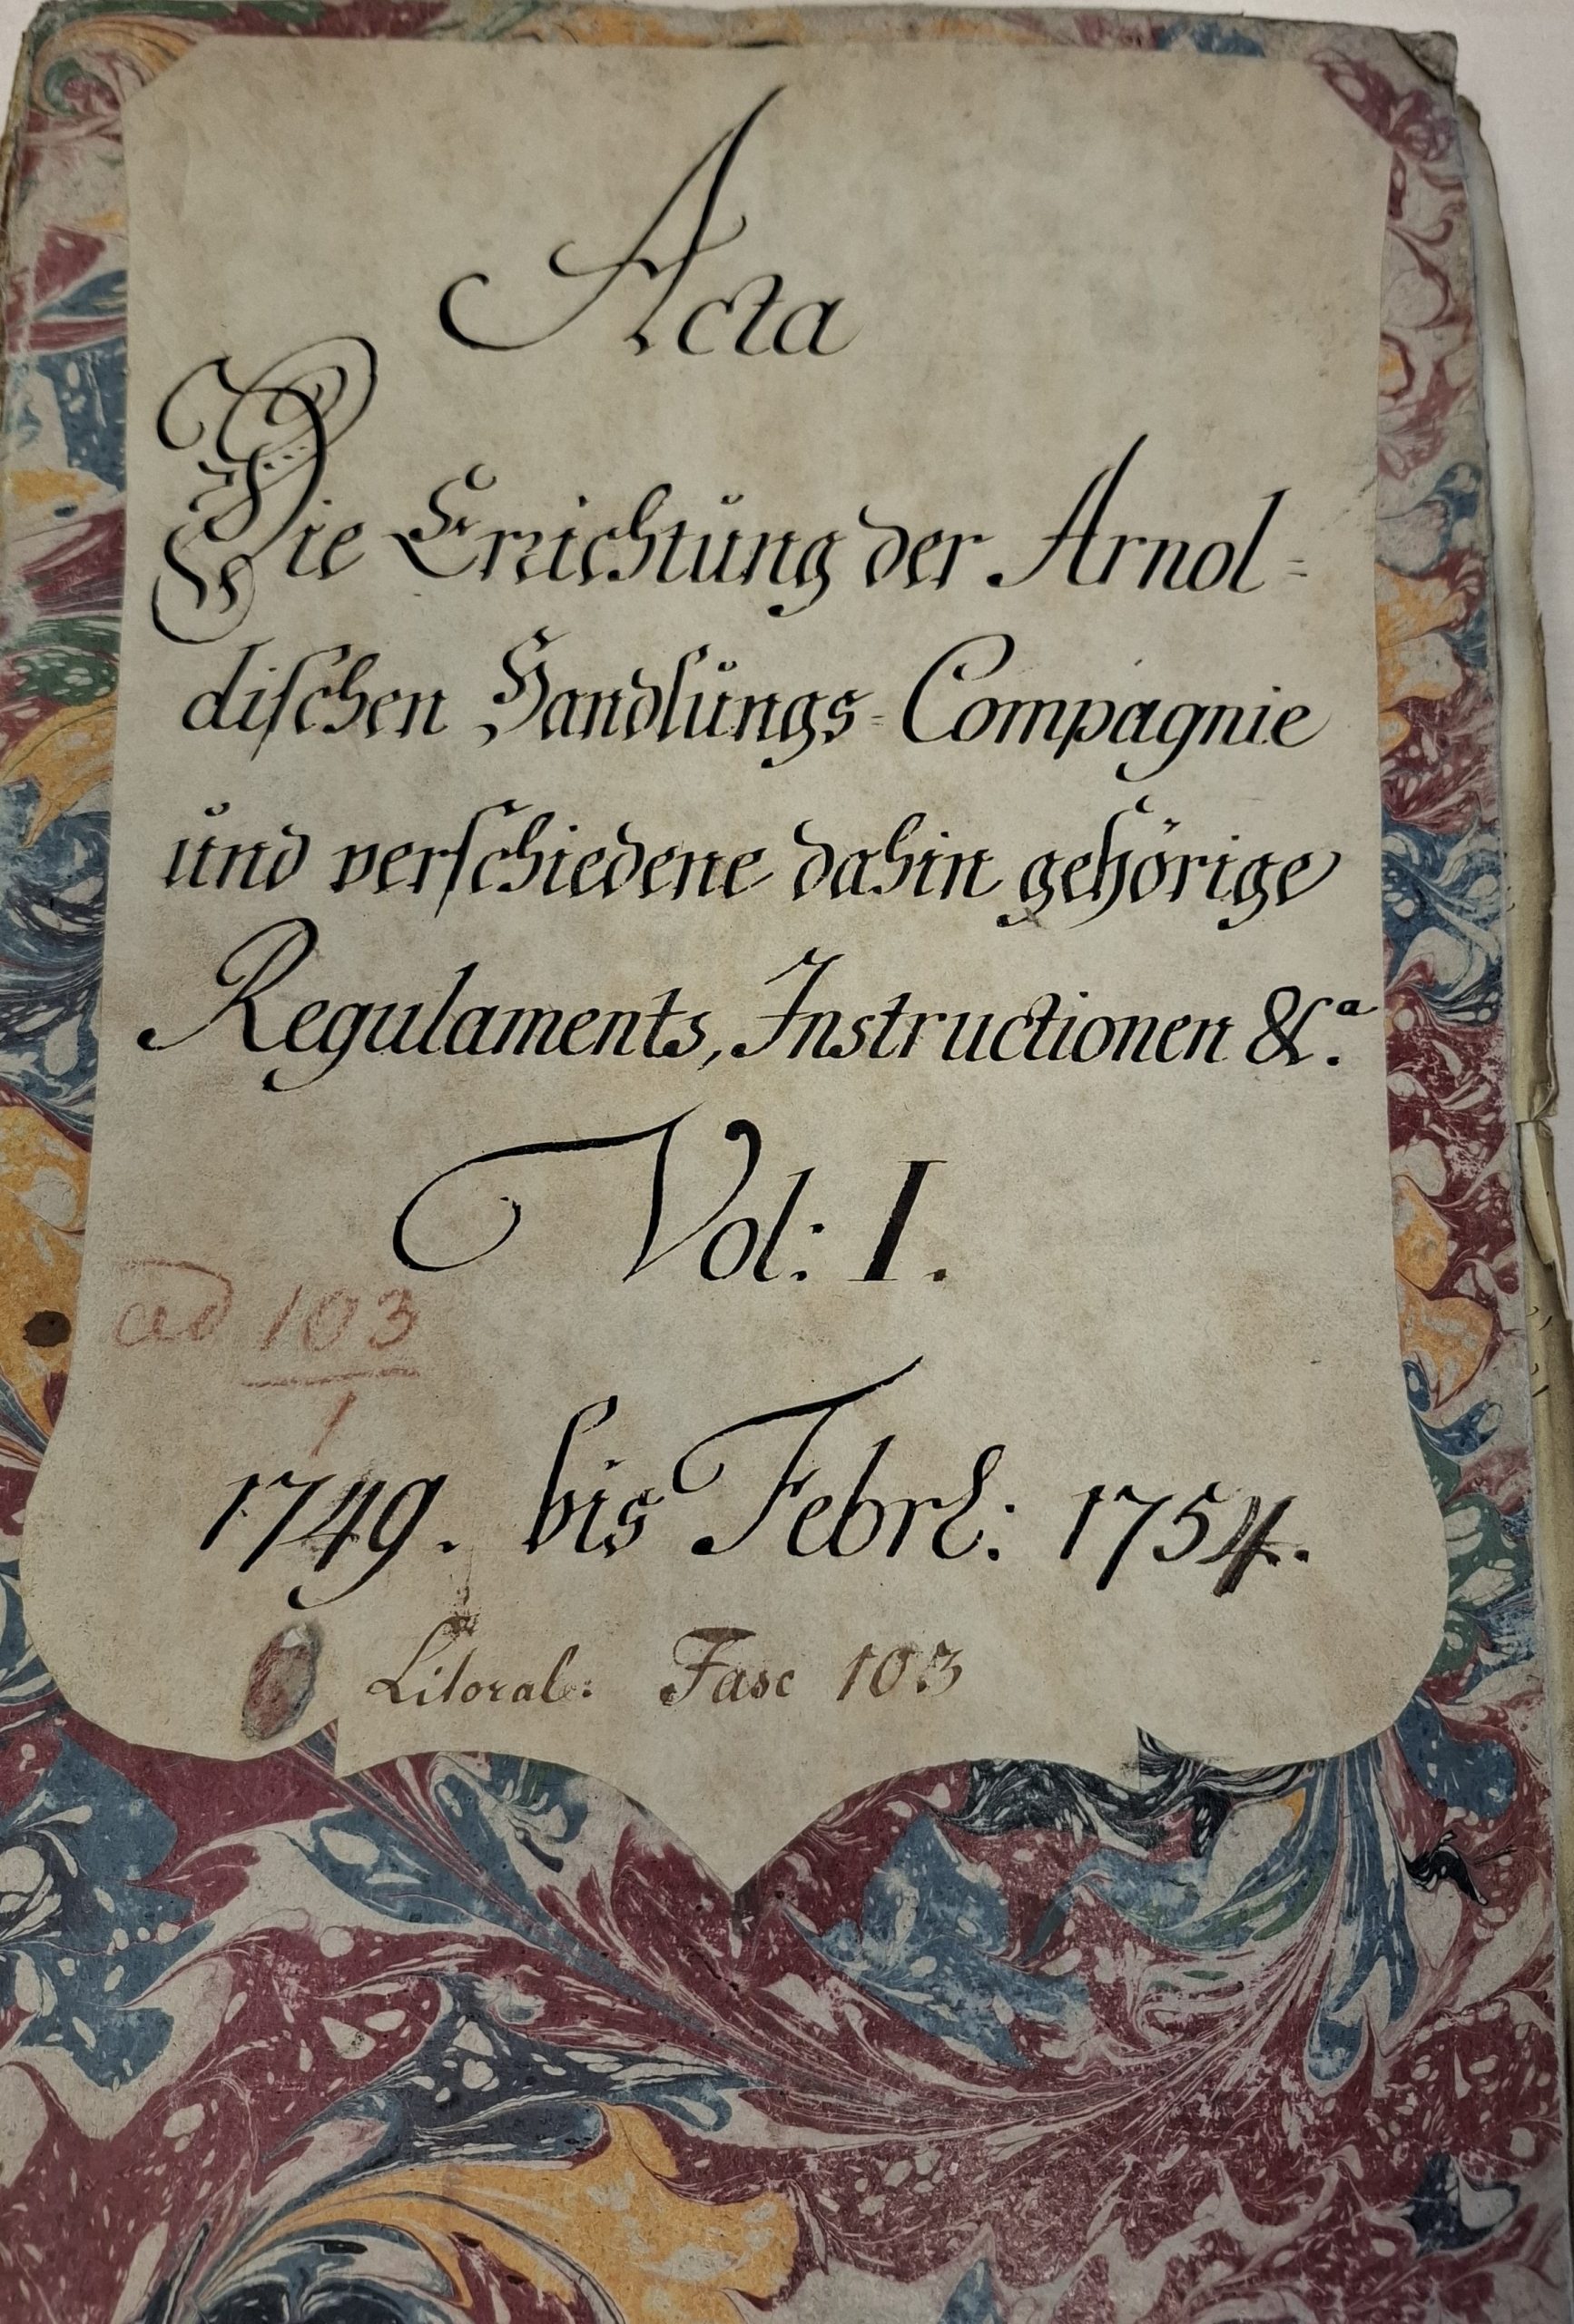 Acta
Die Errichtung der Arnol=
dischen Handlungs=Compagnie
und verschiedene dahin gehörige
Regulaments, Instructionen &c.ᵃ
Vol: I.
ad 103
1
1749. bis Febrl: 1754.
Litoral: Fasc 103